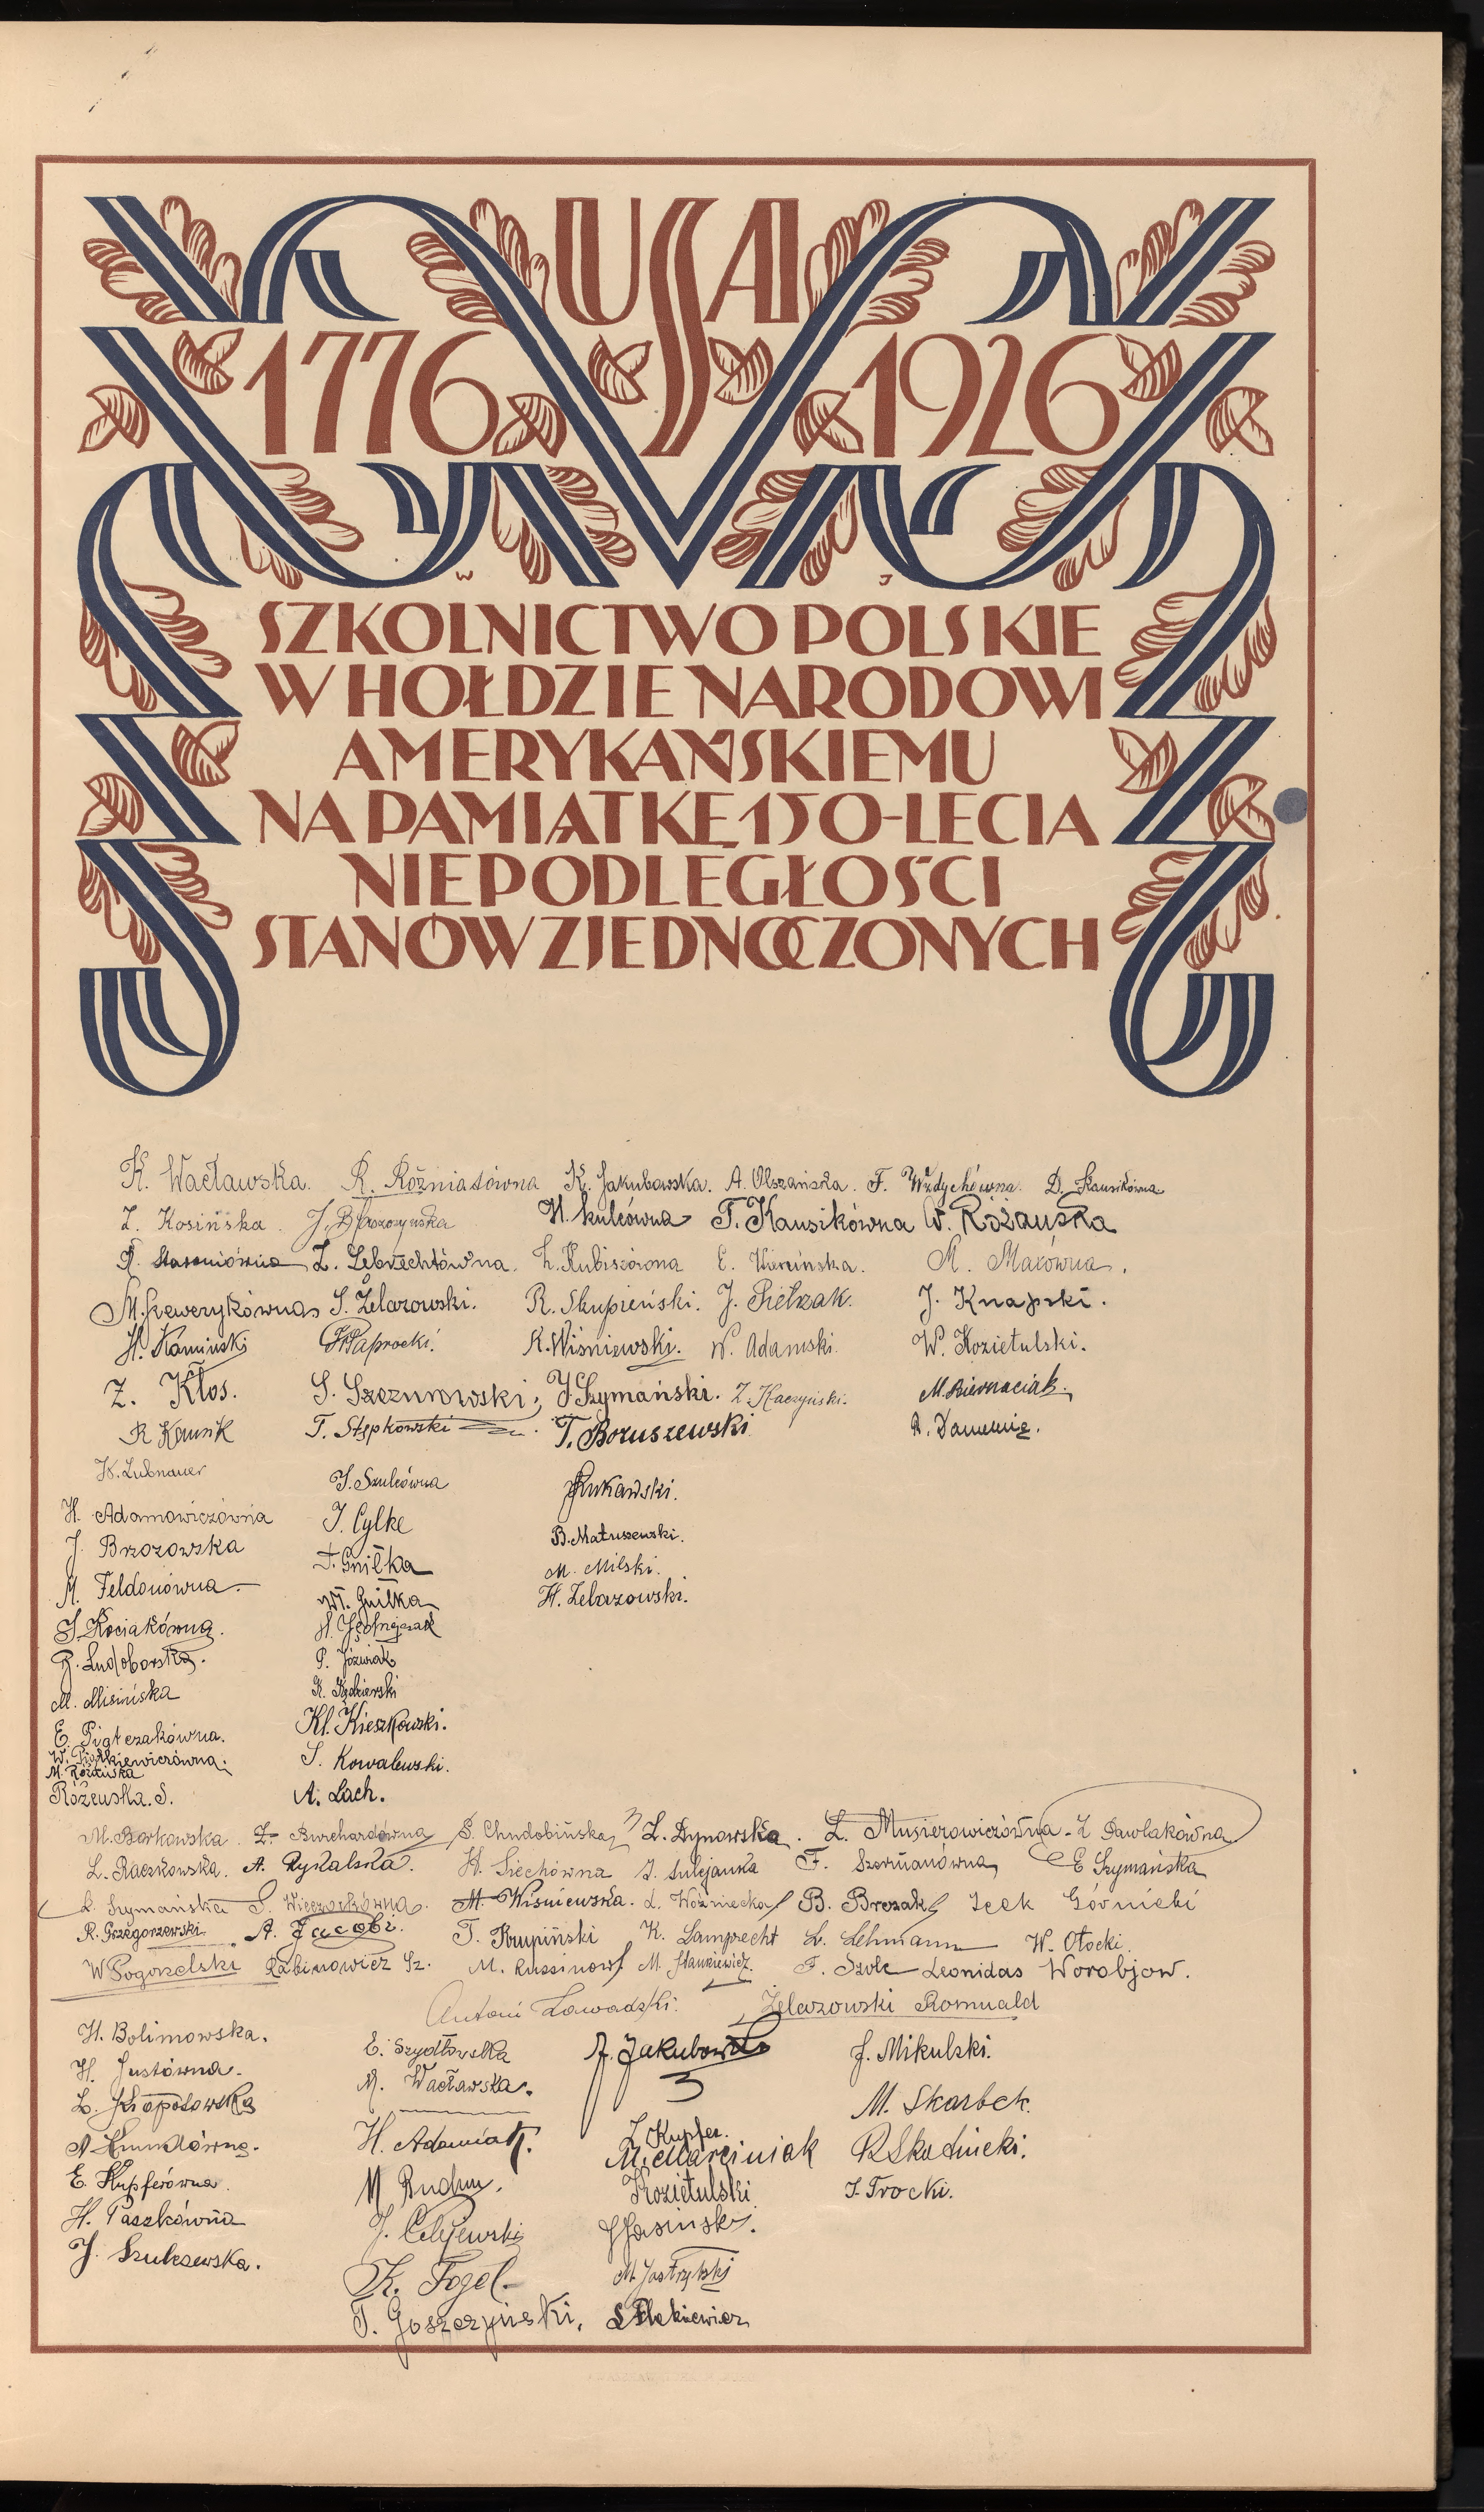 USA
1776 1926
W J
SZKOLNICTWO POLSKIE
W HOŁDZIE NARODOWI
AMERYKAŃSKIEMU
NA PAMIĄTKĘ 150-LECIA
NIEPODLEGŁOŚCI
STANÓW ZJEDNOCZONYCH
K. Wacławska. R. Rożniatówna K. Jakubowska. A. Olszańska. F. Wzdychówna. D.
Z. Kosińska. H. Kulcówna T. Kausikówna W. Różańska
Z. Lebrechtówna. E. M. Maxówna.
S. Żelazowski. R. Skupieński. J. Pietrzak. J. Knapski.
H. Kamiński Paprocki. K. Wiśniewski. W. Adamski. W. Kozietulski.
Z. Kłos. S. Szczurowski; J. Szymański. Z. Kaczyński. M. Biernaciak.
R. Kausik T. Stępkowski T. Boruszewski R.
K. Lubnauer J. Szulcówna Żukawski.
H. Adamowiczówna J. Cylke B. Matuszewski.
J. Brzozowska F. Gniłka M. Milski.
M. Feldonówna Wł. Gniłka H. Żelazowski.
J. Kociakówna. H.
R. Ludoborska. P. Jóźwiak
M. Misińska K. Kędzierski
E. Piątczakówna. Kl. Kieszkowski.
W. Piątkiewiczówna. S. Kowalewski.
M. Różańska
Różewska. S. A. Lach.
M. Borkowska. Z. Burchardówna S. Chudobińska Z. Dynowska. L. Musierowiczówna Z. Pawlakówna
L. Raczkowska. A. Rykalska. H. Siechówna J. Sulejanka F. Szermanówna E. Szymańska
L. Szymańska S. Wieczorkówna. M. Wiśniewska. L. Woźniecka B. Brezak Icek Górnicki
R. Grzegorzewski. A. Jacobi. T. Krupiński K. Lamprecht L. Lehmann W. Otocki.
W Pogorzelski Rabinowicz Sz. M. Russinow M. Stankiewicz. F. Szolc Leonidas Worobjow.
Antoni Zawadzki. Żelazowski Romuald
H. Bolimowska. E. Szydłowska A. Jakubowski J. Mikulski.
H. Justówna. M. Wacławska.
Z. Kłopotowska M. Skarbek.
H. Adamiak. Z. Kupfer.
M. Marciniak R Skodnicki.
E. Kupferówna. M Kozietulski J. Trocki.
H. Paszkówna J. Jasiński.
J. Szulczewska. K. Fogel M. Jastrzębski
T. Goszczyński.